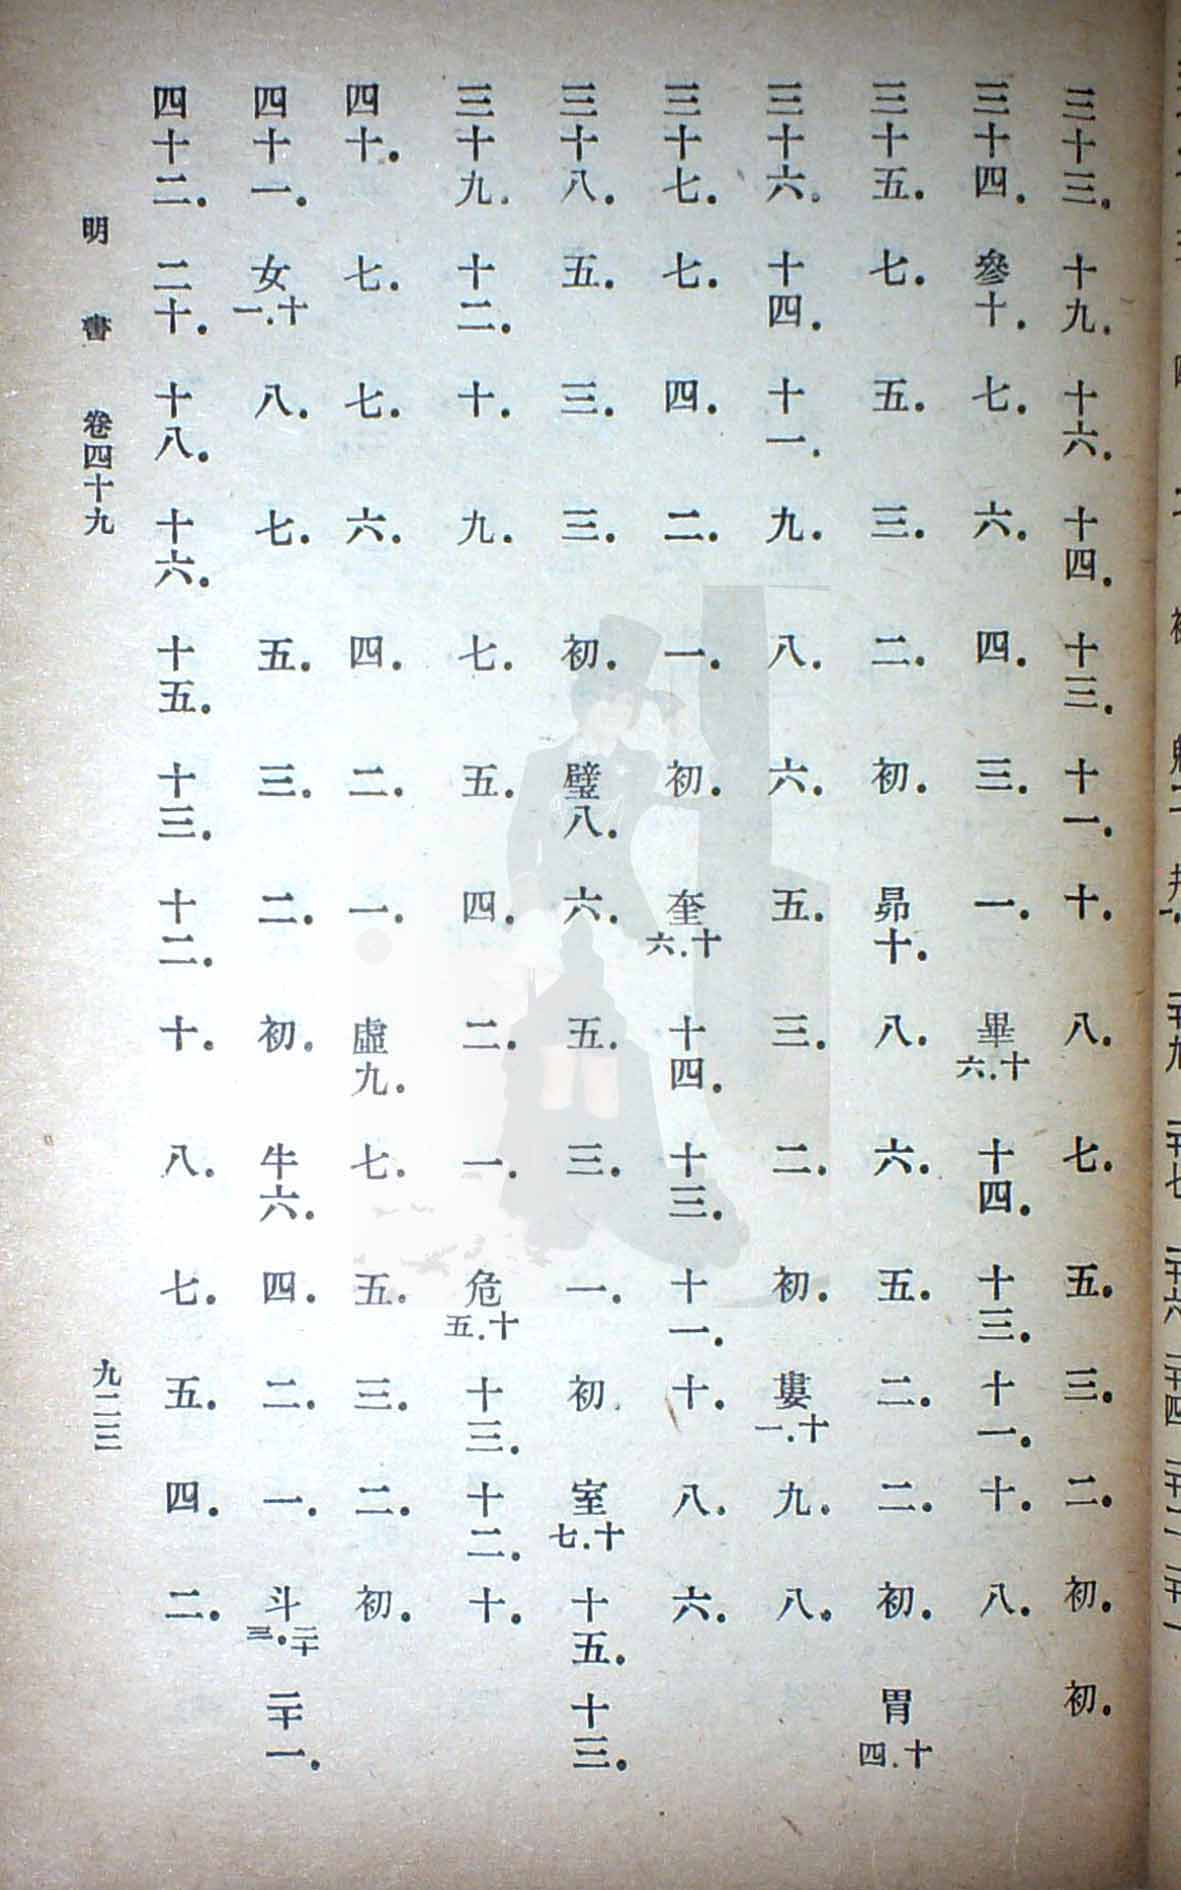 三十三．十九．十六．十四．十三．十一．十．八．七．五．三．二．初．初．
三十四．參十．七．六．四．三．一．畢十六．十四．十三．十一．十．八．
三十五．七．五．三．二．初．昴十．八．六．五．二．二．初．胃十四．
三十六．十四．十一．九．八．六．五．三．二．初．婁十一．九．八．
三十七．七．四．二．一．初．奎十六．十四．十三．十一．十．八．六．
三十八．五．三．三．初．璧八．六．五．三．一．初．室十七．十五．十三．
三十九．十二．十．九．七．五．四．二．一．危十五．十三．十二．十．
四十．七．七．六．四．二．一．虛九．七．五．三．二．初．
四十一．女十一．八．七．五．三．二．初．牛六．四．二．一．斗二十三．二十一．
四十二．二十．十八．十六．十五．十三．十二．十．八．七．五．四．二．
明書 卷四十九
九二三